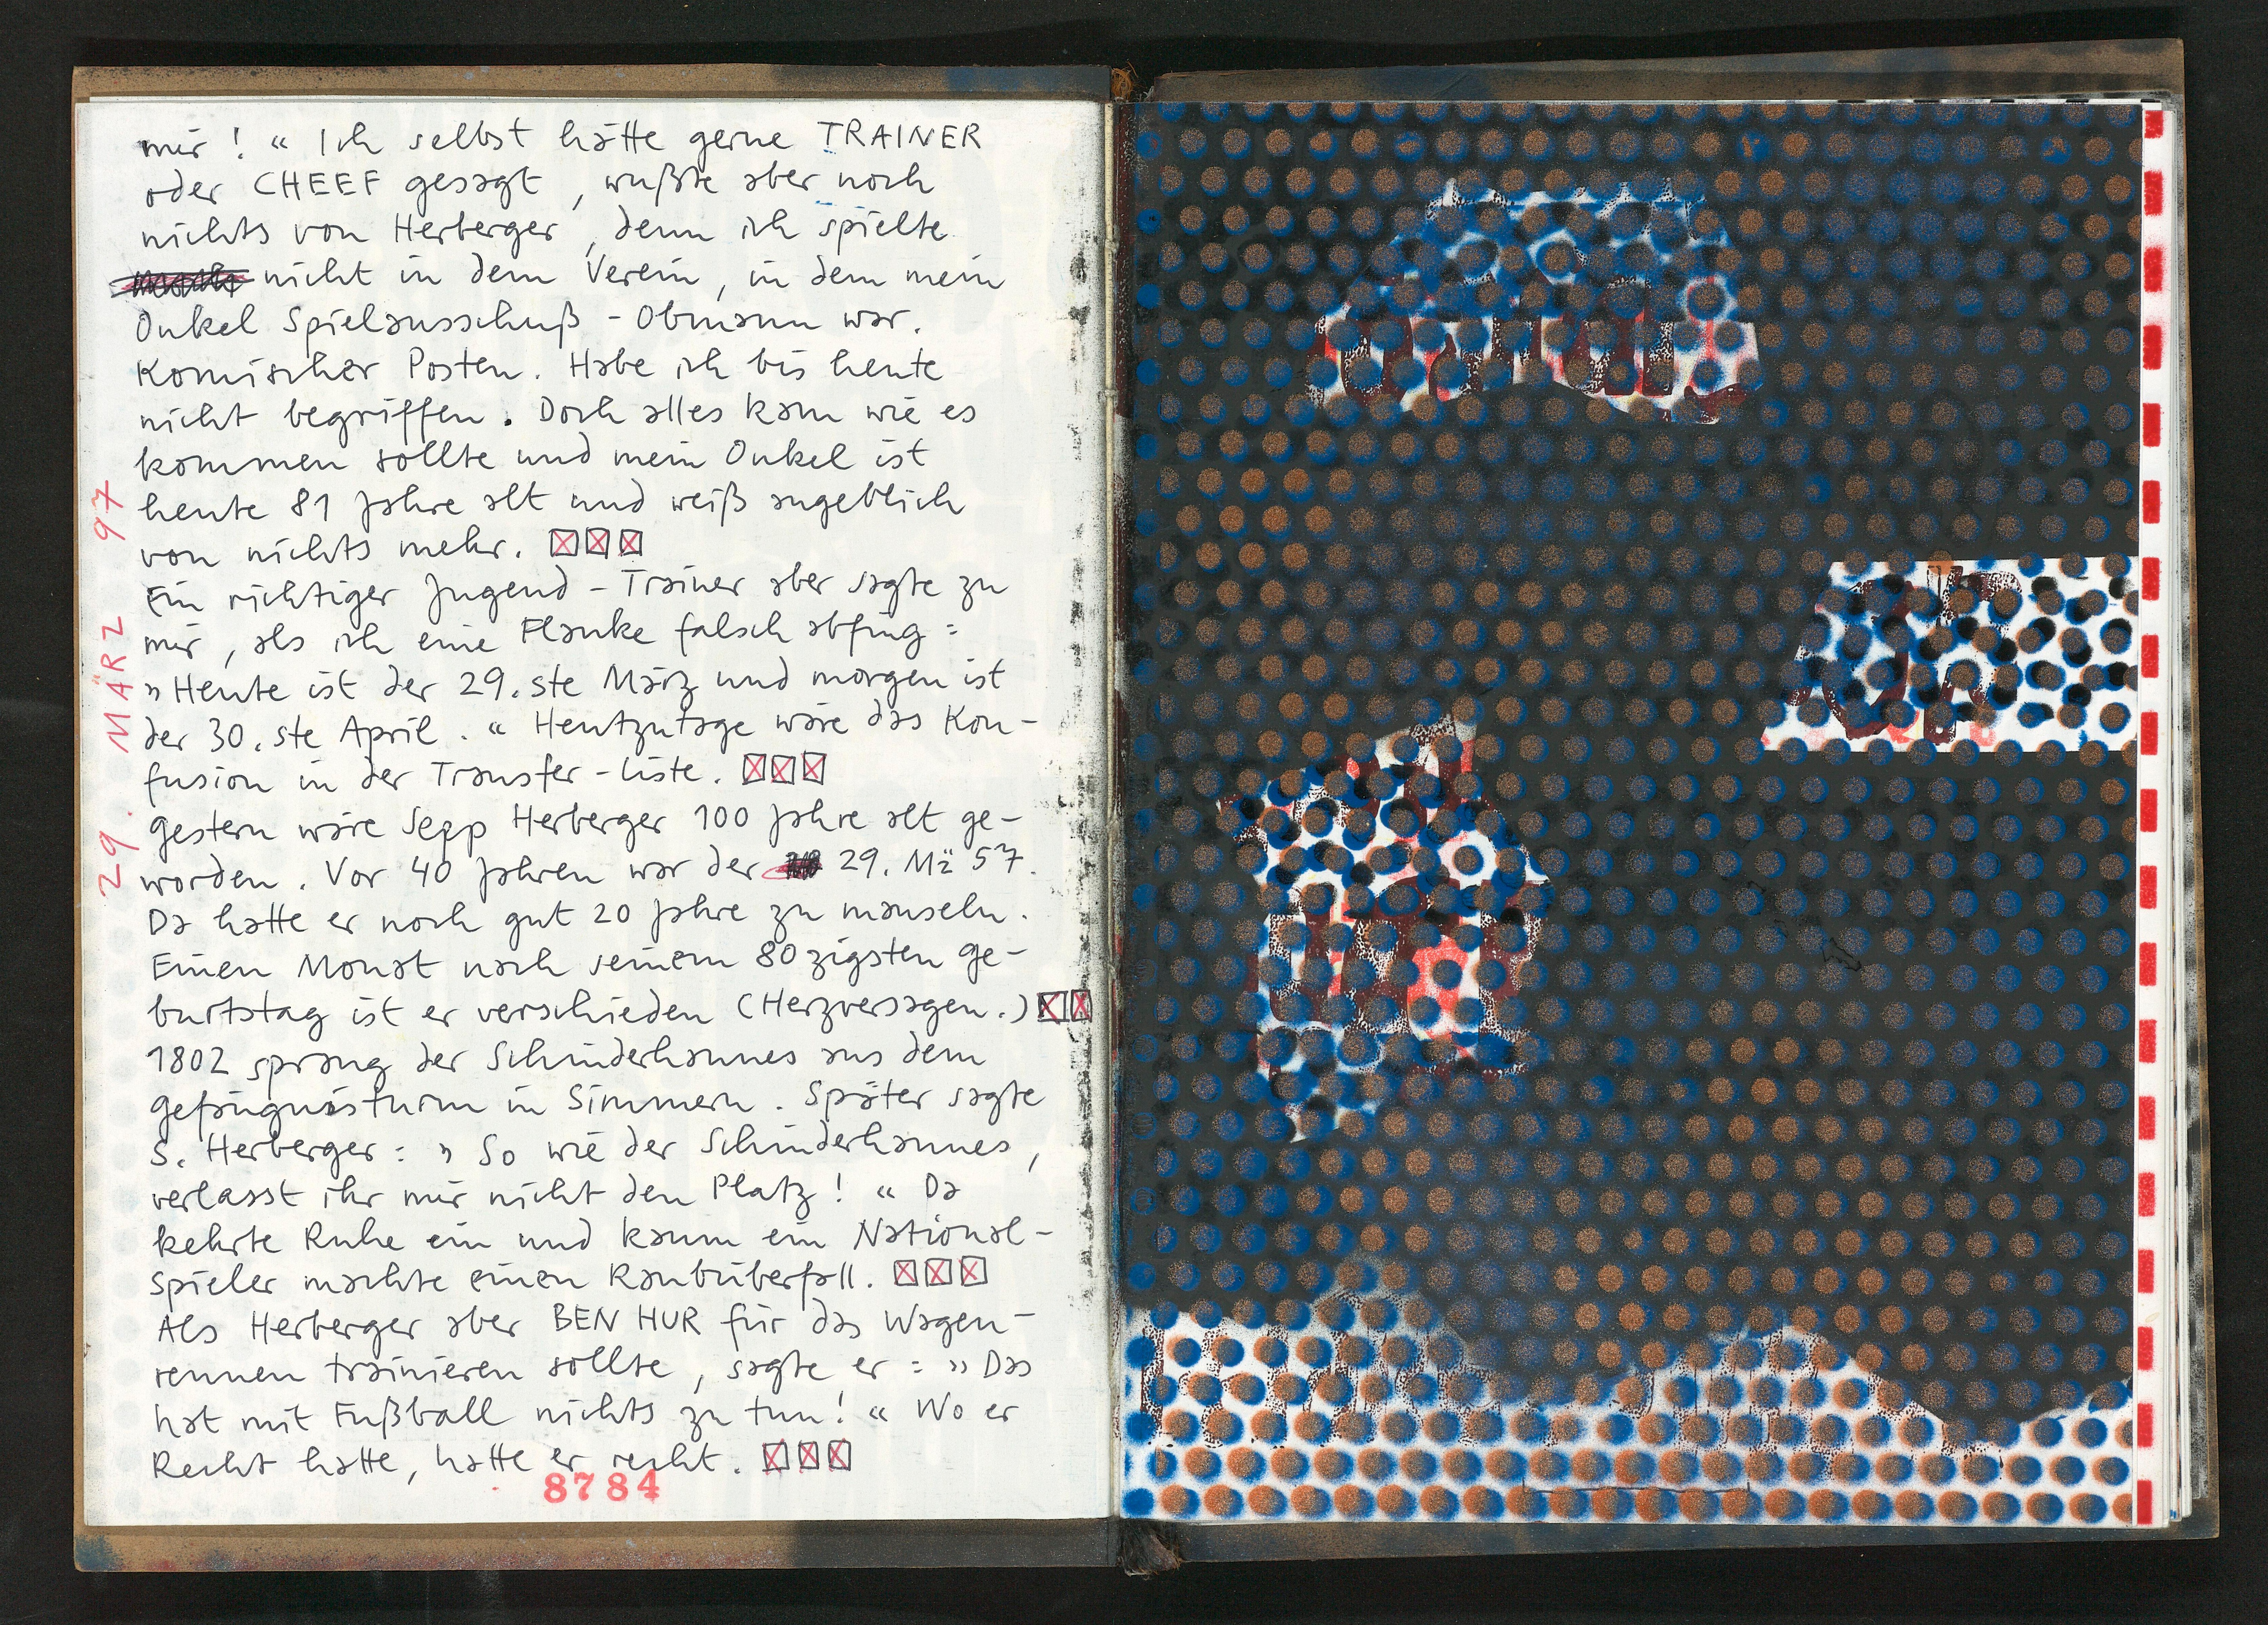 mir! “ Ich selbst hätte gerne TRAINER
oder CHEEF gesagt, wußte aber noch
nichts von Herberger, denn ich spielte
nicht in dem Verein, in dem mein
Onkel Spielausschuß-Obmann war.
Komischer Posten. Habe ich bis heute
nicht begriffen. Doch alles kam wie es
kommen sollte und mein Onkel ist
heute 81 Jahre alt und weiß angeblich
von nichts mehr. ☒☒☒
Ein richtiger Jugend-Trainer aber sagte zu
mir, als ich eine Flanke falsch abfing:
„Heute ist der 29.ste März und morgen ist
der 30.ste April. “ Heutzutage wäre das Kon-
fusion in der Transfer-Liste. ☒☒☒
Gestern wäre Sepp Herberger 100 Jahre alt ge-
worden. Vor 40 Jahren war der 29. Mä 57.
Da hatte er noch gut 20 Jahre zu mauseln.
Einen Monat nach seinem 80zigsten Ge-
burtstag ist er verschieden (Herzversagen.) ☒☒
1802 sprang der Schinderhannes aus dem
Gefängnisturm in Simmern. Später sagte
S. Herberger: „So wie der Schinderhannes,
verlasst ihr mir nicht den Platz! “ Da
kehrte Ruhe ein und kaum ein National-
spieler machte einen Raubüberfall. ☒☒☒
Als Herberger aber BEN HUR für das Wagen-
rennen trainieren sollte, sagte er: „Das
hat mit Fußball nichts zu tun! “ Wo er
Recht hatte, hatte er recht. ☒☒☒
8784
29. MÄRZ 97